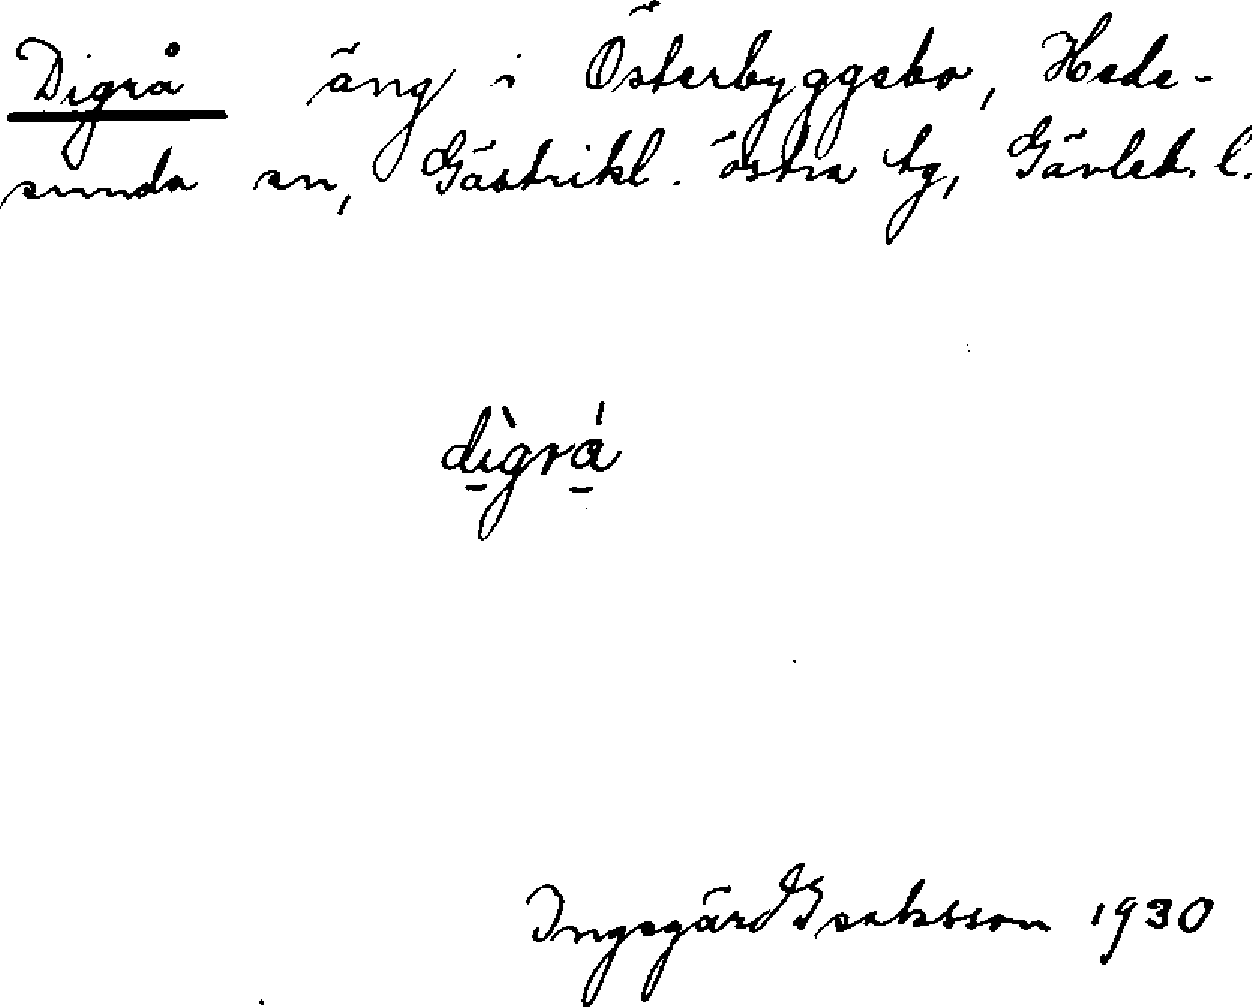 Digrå äng i Österbyggebo, Hede-
sunda sn, Gästrikl. östra tg, Gävleb. l.
dìgrá
Ingegärd Isaksson 1930